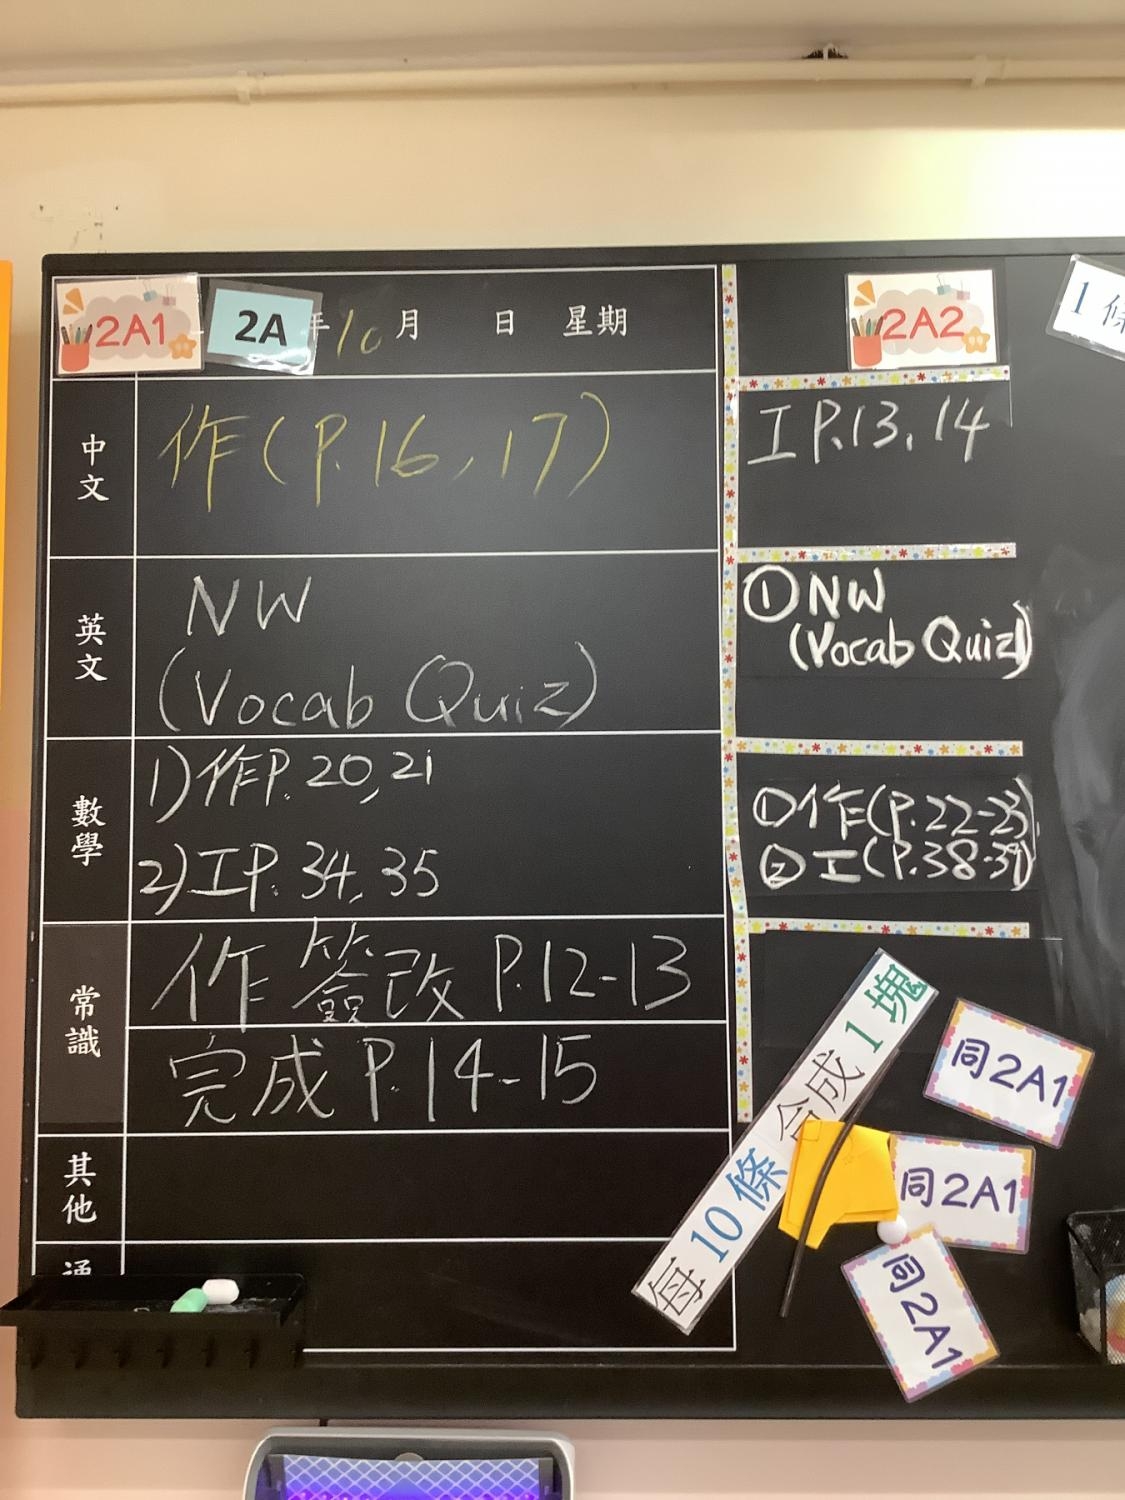 2A1
2A
年10月 日 星期
中文
作(P.16,17)
英文
NW
(Vocab Quiz)
數學
1)作P.20,21
2)工P.34,35
常識
作 簽改 P.12-13
完成 P.14-15
其他
通
2A2
1條
工P.13,14
①NW
(Vocab Quiz)
①作(P.22-23)
②工(P.38-39)
每10條合成1塊
同2A1
同2A1
同2A1